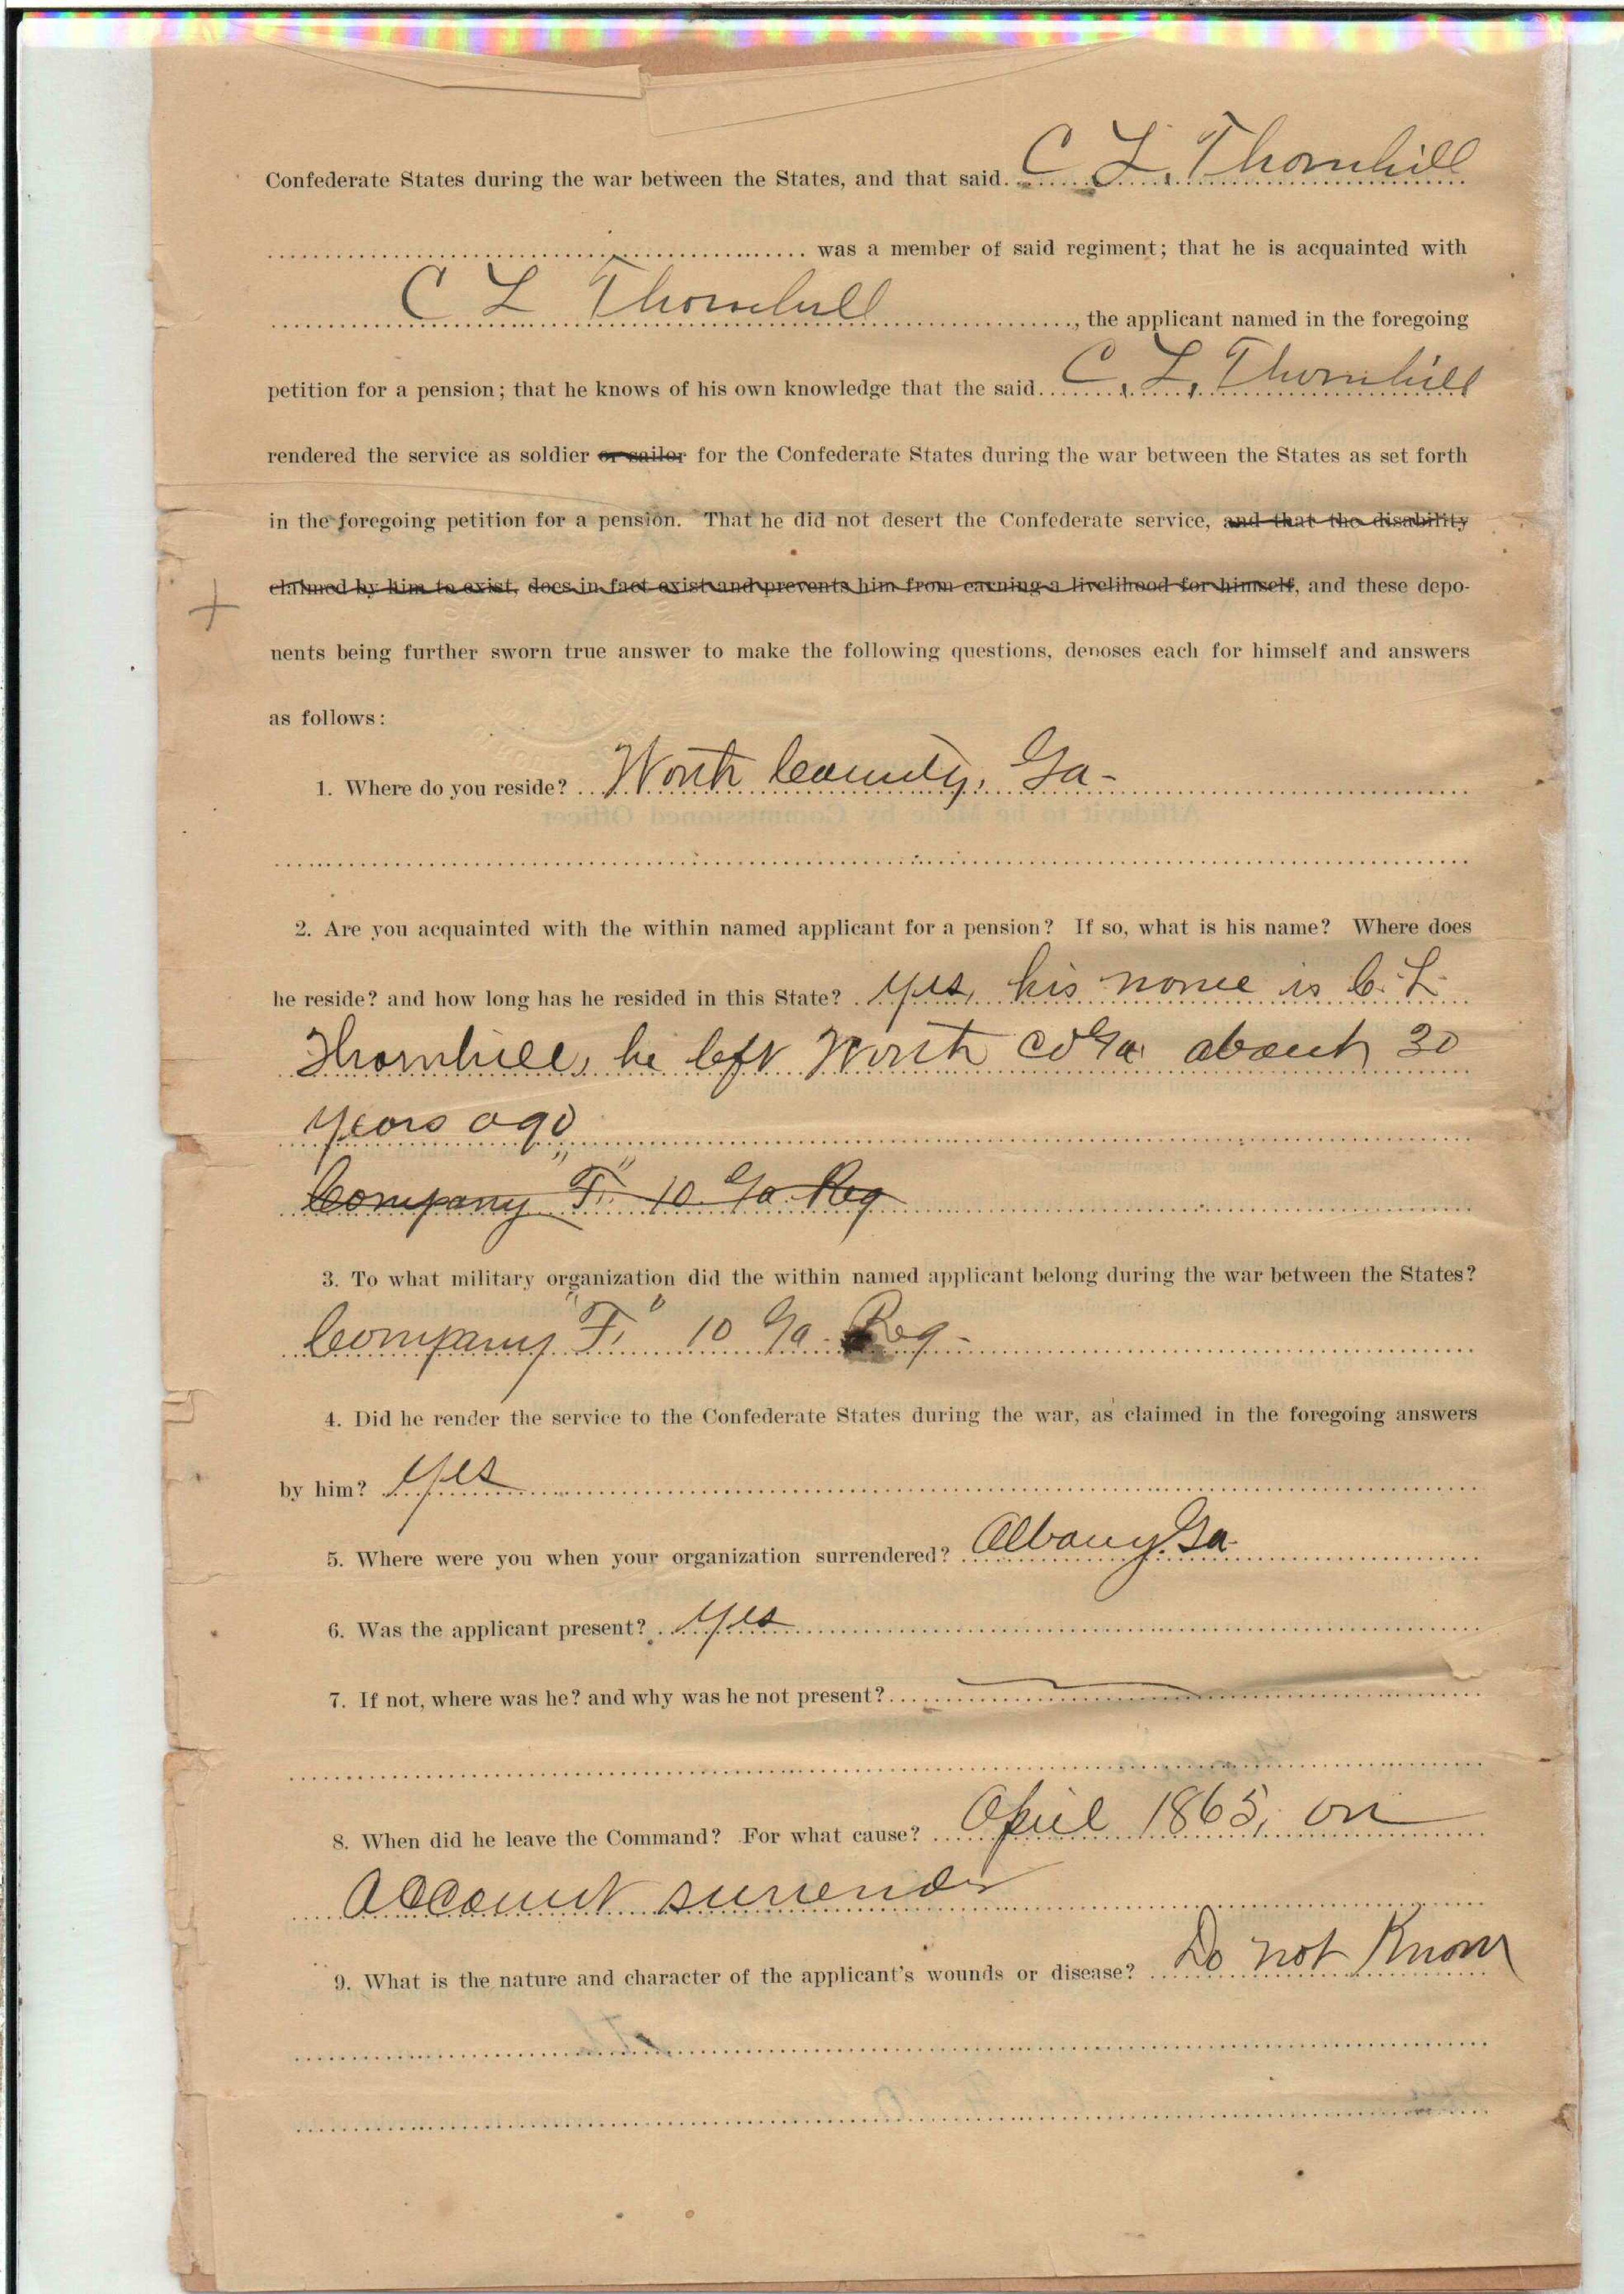 Confederate States during the war between the States, and that said. C L. Thornhill
was a member of said regiment; that he is acquainted with
C L Thornhill, the applicant named in the foregoing
petition for a pension; that he knows of his own knowledge that the said. C. L. Thornhill
rendered the service as soldier or sailor for the Confederate States during the war between the States as set forth
in the foregoing petition for a pension. That he did not desert the Confederate service, and that the disability
claimed by him to exist, does in fact exist and prevents him from earning a livelihood for himself, and these depo-
nents being further sworn true answer to make the following questions, deposes each for himself and answers
as follows:
1. Where do you reside? Worth County, Ga-
2. Are you acquainted with the within named applicant for a pension? If so, what is his name? Where does
he reside? and how long has he resided in this State? Yes, his name is C. L
Thornhill, he left Worth Co Ga about 30
years ago
Company "F." 10 Ga. Reg
3. To what military organization did the within named applicant belong during the war between the States?
Company "F." 10 Ga. Reg-
4. Did he render the service to the Confederate States during the war, as claimed in the foregoing answers
by him? Yes
5. Where were you when your organization surrendered? Albany. Ga-
6. Was the applicant present? Yes
7. If not, where was he? and why was he not present?
8. When did he leave the Command? For what cause? April 1865, on
account surrender
9. What is the nature and character of the applicant's wounds or disease? Do not Know